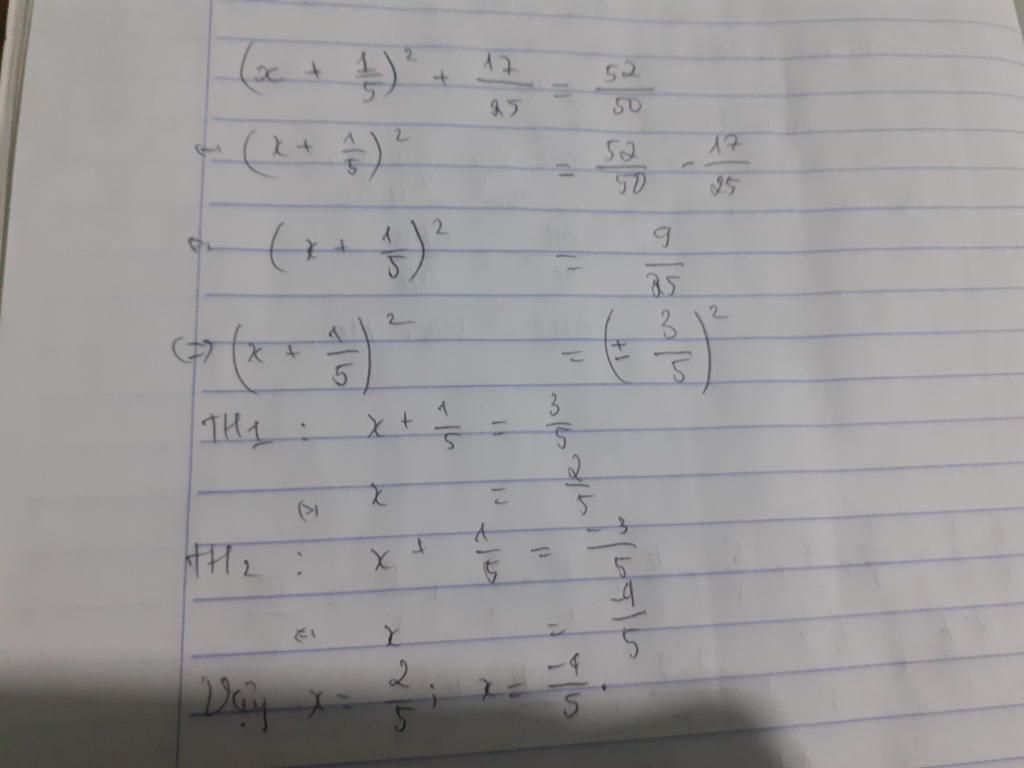 (x + 1/5)² + 17/25 = 52/50
⇔ (x + 1/5)² = 52/50 - 17/25
⇔ (x + 1/5)² = 9/25
⇔ (x + 1/5)² = (± 3/5)²
TH1 : x + 1/5 = 3/5
⇔ x = 2/5
TH2 : x + 1/5 = -3/5
⇔ x = -4/5
Vậy x = 2/5 ; x = -4/5.